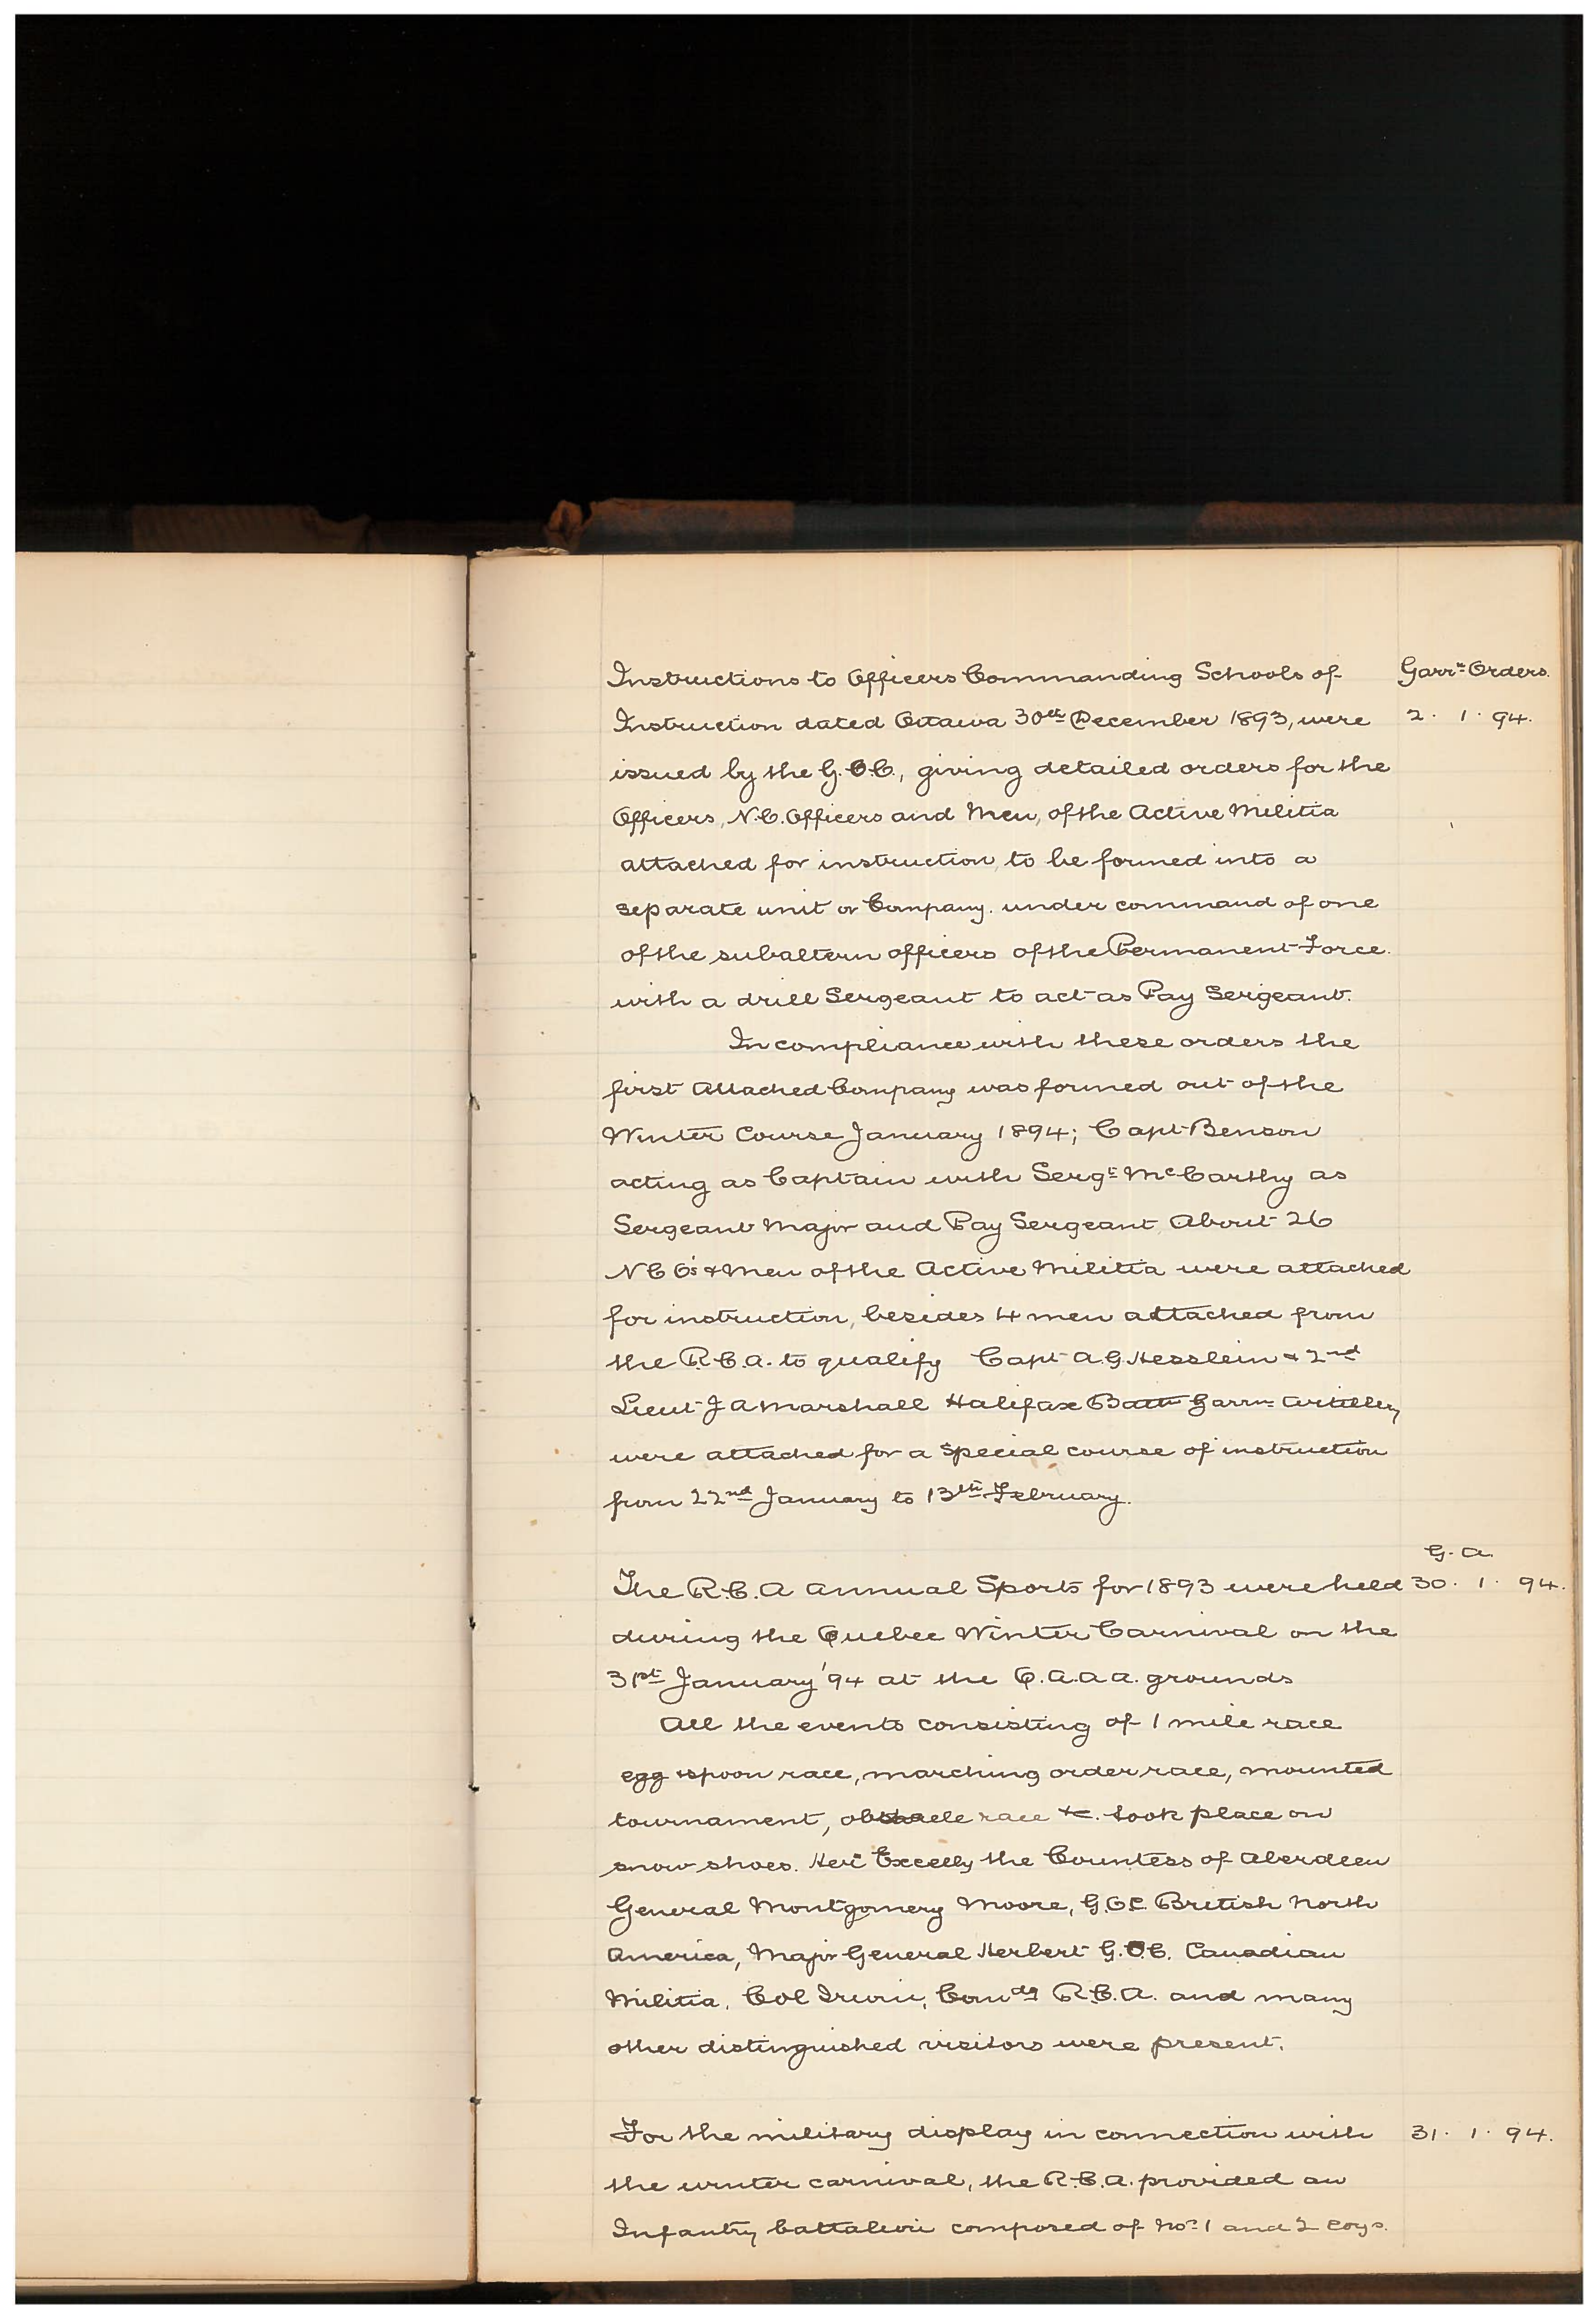 Instructions to Officers Commanding Schools of Garrn Orders.
Instruction dated Ottawa 30th December 1893, were 2. 1. 94.
issued by the G.O.C., giving detailed orders for the
Officers, N.C. Officers and Men, of the Active Militia
attached for instruction, to be formed into a
separate unit or Company. under command of one
of the subaltern officers of the Permanent Force.
with a drill Sergeant to act as Pay Sergeant.
In compliance with these orders the
first Attached Company was formed out of the
Winter Course January 1894; Capt Benson
acting as Captain with Sergt McCarthy as
Sergeant Major and Pay Sergeant. About 26
N C O's & Men of the Active Militia were attached
for instruction, besides 4 men attached from
the R.C.A. to qualify Capt A.G. Hesslein & 2nd
Lieut J A Marshall Halifax Battn Garrn Artillery
were attached for a special course of instruction
from 22nd January to 13th February.
G. A.
The R.C.A Annual Sports for 1893 were held 30. 1. 94.
during the Quebec Winter Carnival on the
31st January '94 at the Q.A.A.A. grounds
All the events consisting of 1 mile race
egg & spoon race, marching order race, mounted
tournament, obstacle race &c. took place on
snow shoes. Her Excelly the Countess of Aberdeen
General Montgomery Moore, G.O.C. British North
America, Major General Herbert G.O.C. Canadian
Militia, Col Irwin, Comdg R.C.A. and many
other distinguished visitors were present.
For the military display in connection with 31. 1. 94.
the winter carnival, the R.C.A. provided an
Infantry battalion composed of No. 1 and 2 Coys.